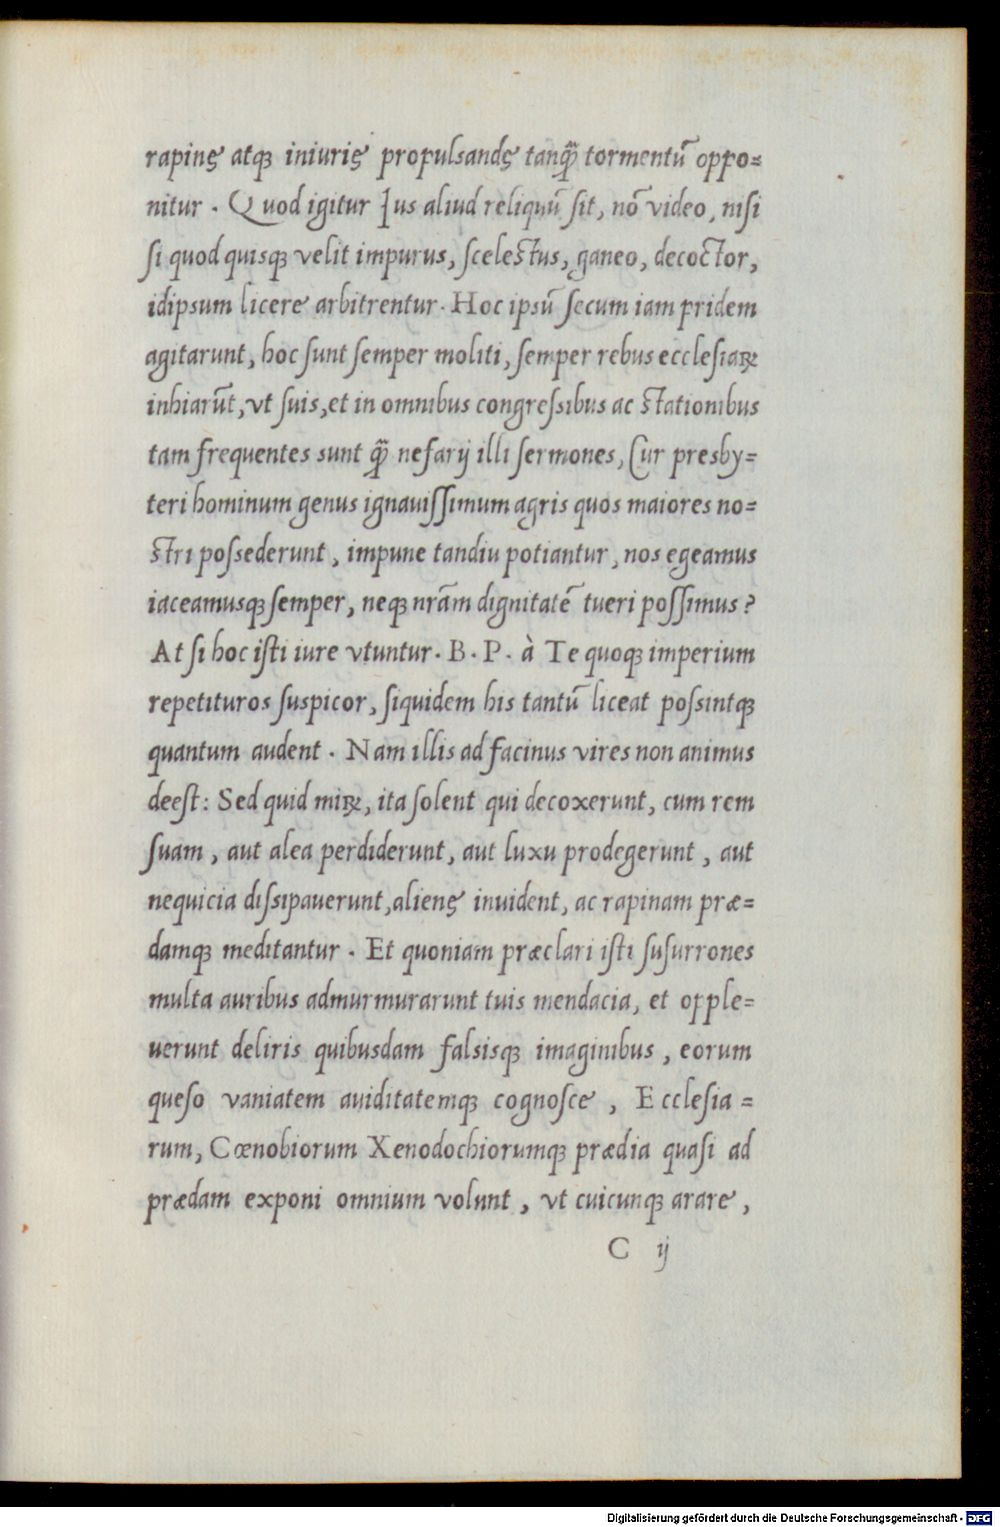 rapinę atqꝫ iniurię propulsandę tanqꝫ̃ tormentũ oppo=
nitur . Quod igitur Ius aliud reliquũ ſit, nõ video, niſi
ſi quod quisqꝫ velit impurus, ſceleſtus, ganeo, decoctor,
idipsum licere arbitrentur. Hoc ipsũ ſecum iam pridem
agitarunt, hoc ſunt ſemper moliti, ſemper rebus eccleſiaꝝ
inhiarũt, vt ſuis, et in omnibus congreſsibus ac ſtationibus
tam frequentes sunt qꝫ̃ nefarij illi ſermones, Cur presby=
teri hominum genus ignauiſſimum agris quos maiores no=
ſtri poſsederunt , impune tandiu potiantur , nos egeamus
iaceamusqꝫ ſemper, neqꝫ nrãm dignitatẽ tueri poſſimus ?
At ſi hoc iſti iure vtuntur. B. P. à Te quoqꝫ imperium
repetituros ſuspicor, ſiquidem his tantũ liceat poſsintqꝫ
quantum audent . Nam illis ad facinus vires non animus
deeſt: Sed quid miꝝ, ita ſolent qui decoxerunt, cum rem
ſuam , aut alea perdiderunt, aut luxu prodegerunt , aut
nequicia diſsipauerunt, alienę inuident, ac rapinam præ=
damqꝫ meditantur . Et quoniam præclari iſti ſuſurrones
multa auribus admurmurarunt tuis mendacia, et opple=
uerunt deliris quibusdam falsisqꝫ imaginibus , eorum
queſo vaniatem auiditatemqꝫ cognoſce , Eccleſia =
rum, Cœnobiorum Xenodochiorumqꝫ prædia quaſi ad
prædam exponi omnium volunt , vt cuicunqꝫ arare ,
C ij
Digitalisierung gefördert durch die Deutsche Forschungsgemeinschaft - DFG